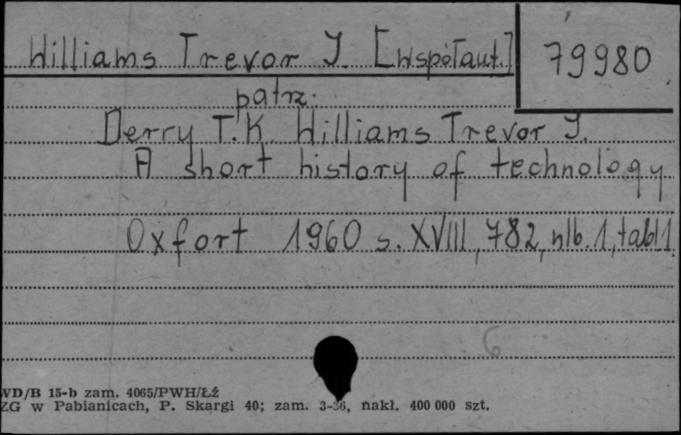 Williams Trevor J. [współaut.] 79980
patrz:
Derry T.K. Williams Trevor J.
A short history of technology
Oxfort 1960 s. XVIII, 782, nlb. 1, tabl 1.
6
WD/B 15-b zam. 4065/PWH/Łź
ZG w Pabianicach, P. Skargi 40; zam. 3-36, nakł. 400 000 szt.